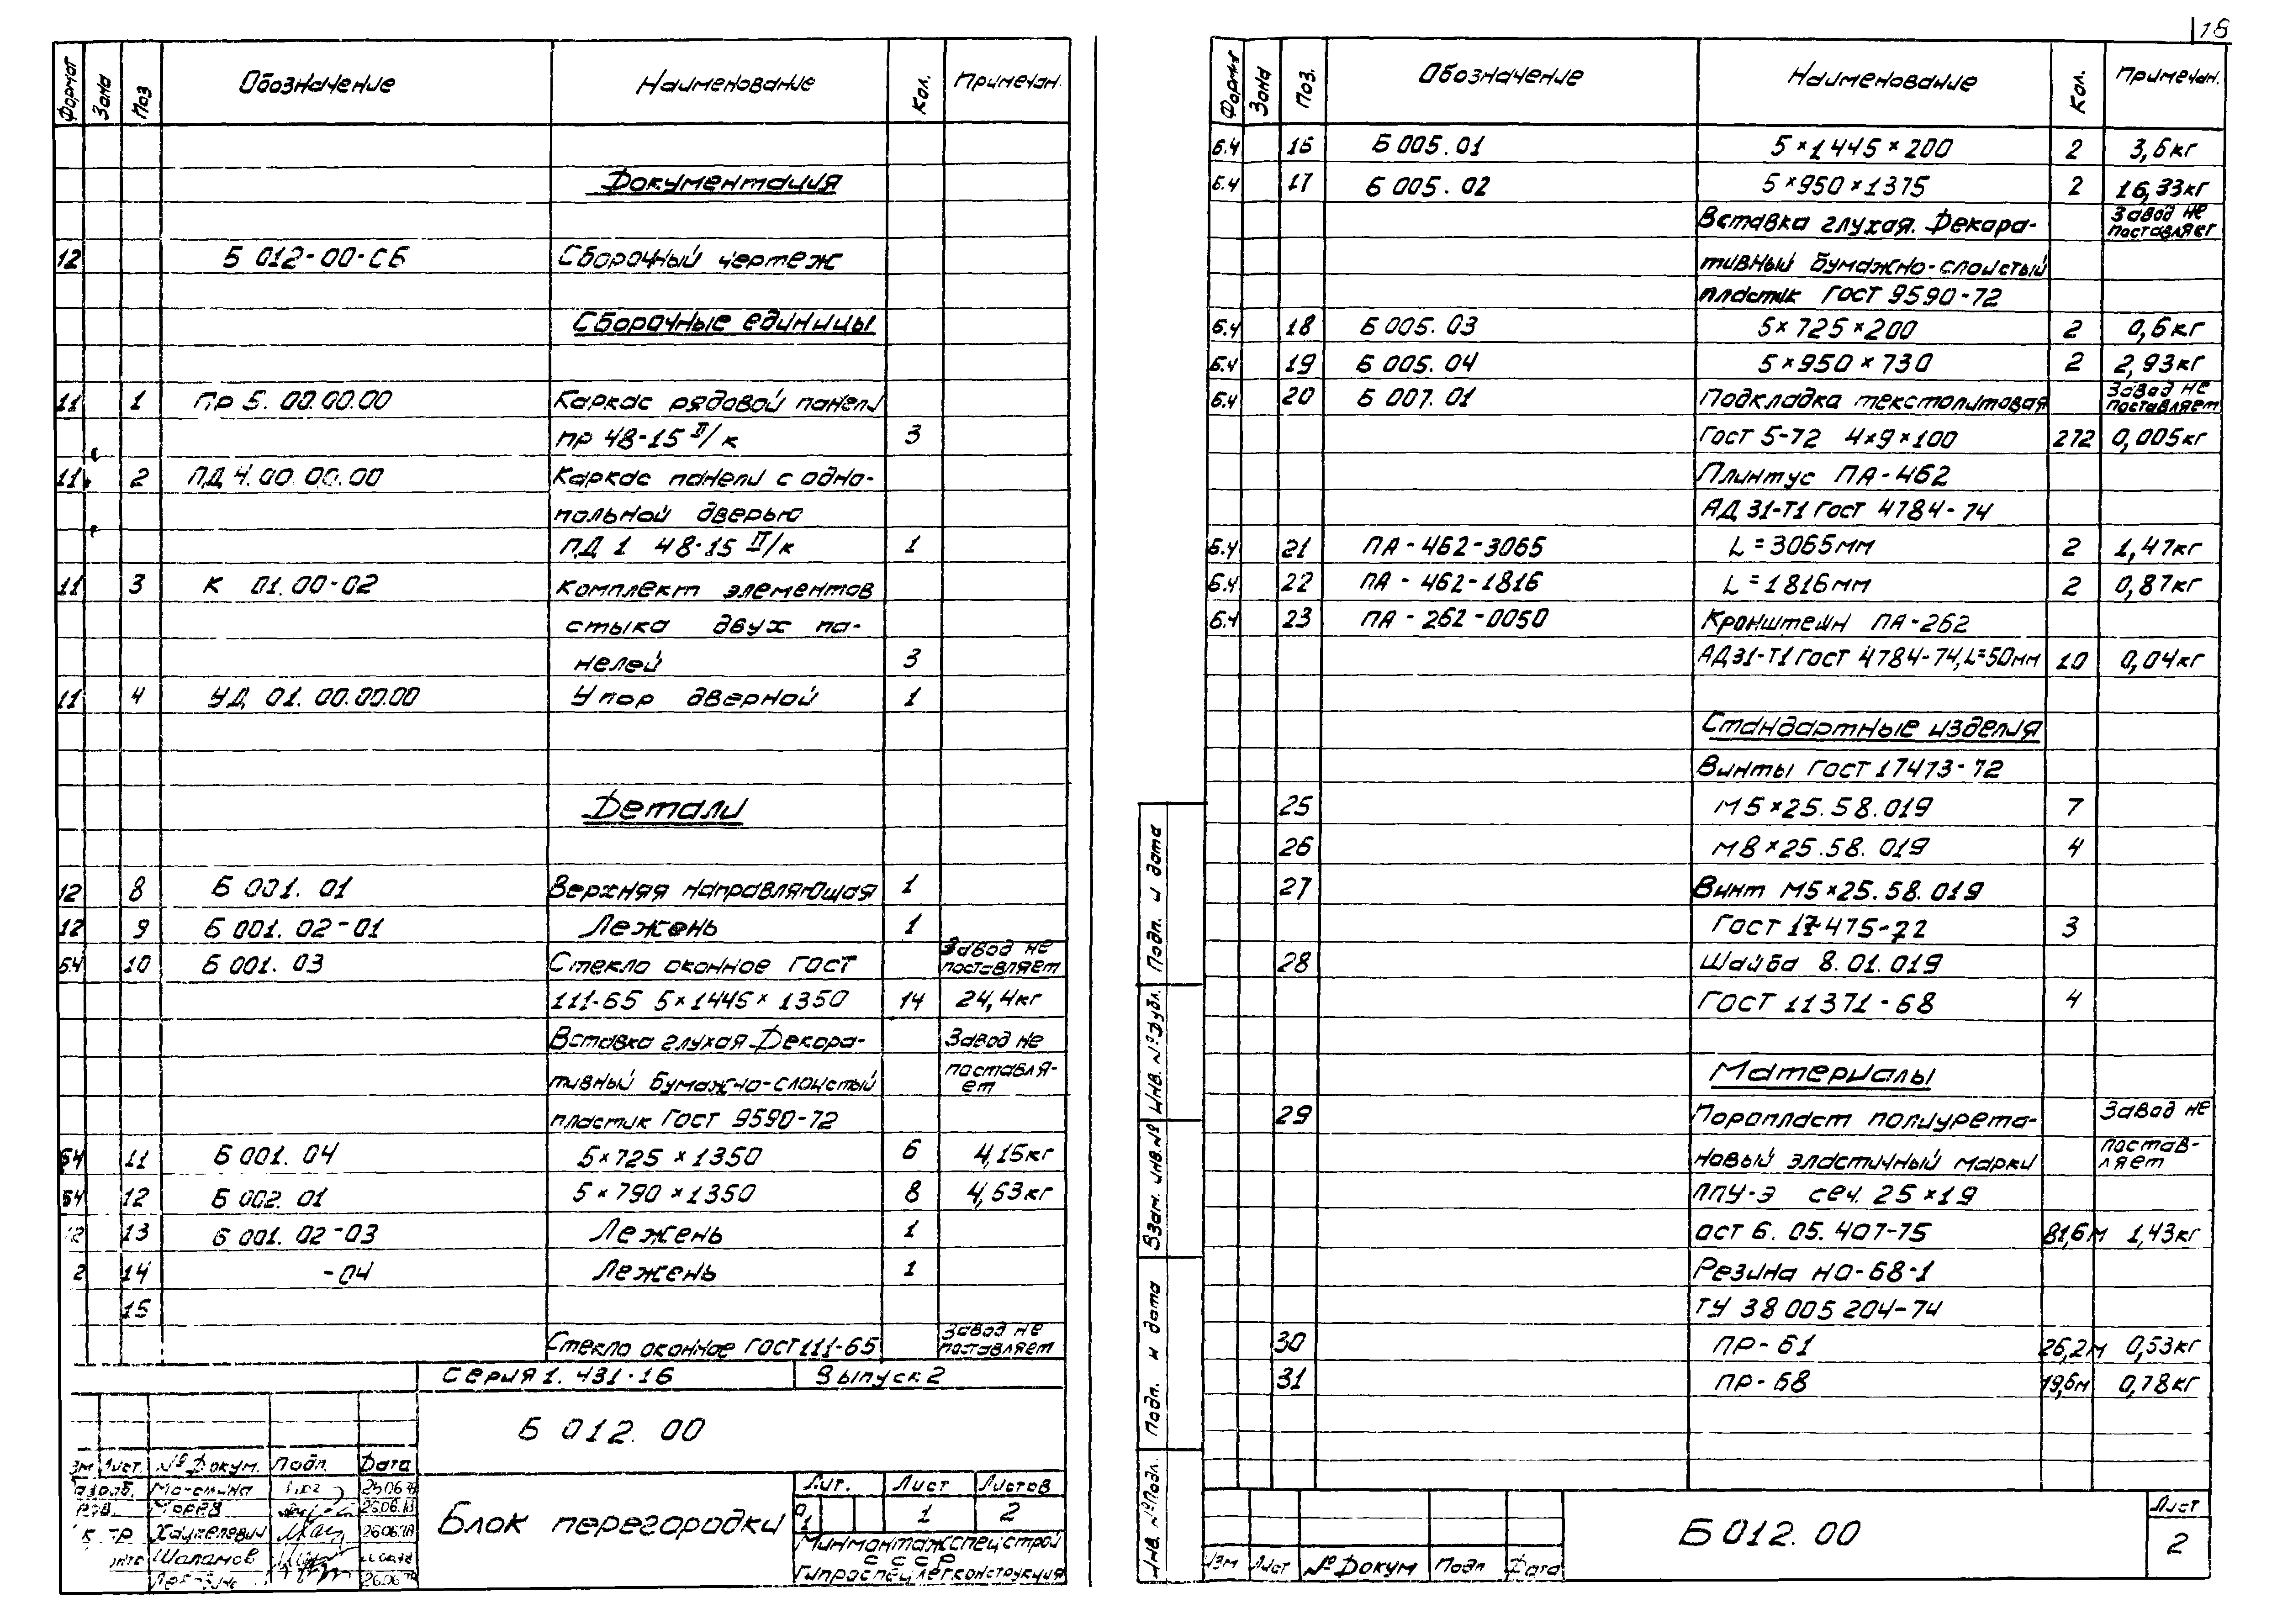 18
Формат Зона Поз Обозначение Наименование Кол. Примечан.
Документация
12 Б 012-00-СБ Сборочный чертеж
Сборочные единицы
11 1 ПР 5. 00.00.00 Каркас рядовой панели
ПР 48-15 II/к 3
11 2 ПД 4.00.00.00 Каркас панели с одно-
польной дверью
ПД 1 48-15 II/к 1
11 3 К 01.00-02 Комплект элементов
стыка двух па-
нелей 3
11 4 УД 01.00.00.00 Упор дверной 1
Детали
12 8 Б 001. 01 Верхняя направляющая 1
12 9 Б 001. 02-01 Лежень 1
Б.Ч 10 Б 001. 03 Стекло оконное ГОСТ Завод не поставляет
111-65 5×1445×1350 14 24,4кг
Вставка глухая Декора- Завод не
тивный бумажно-слоистый поставля-
ет
пластик ГОСТ 9590-72
БЧ 11 Б 001. 04 5×725×1350 6 4,15кг
БЧ 12 Б 002. 01 5×790×1350 8 4,53кг
12 13 Б 001. 02-03 Лежень 1
2 14 -04 Лежень 1
15
Стекло оконное ГОСТ 111-65 Завод не поставляет
Серия 1. 431-16 Выпуск 2
Б 012. 00
Изм Лист. № Докум. Подп. Дата
Блок перегородки
Лит. Лист Листов
Р1 1 2
Минмонтажспецстрой
СССР
Гипроспецлегконструкция
Хацкелевич 26.06.78
Шаламов
Формат Зона Поз. Обозначение Наименование Кол. Примечан.
Б.Ч 16 Б 005. 01 5×1445×200 2 3,6кг
Б.Ч 17 Б 005. 02 5×950×1375 2 16,33кг
Вставка глухая. Декора- Завод не поставляет
тивный бумажно-слоистый
пластик ГОСТ 9590-72
Б.Ч 18 Б 005. 03 5×725×200 2 0,6кг
Б.Ч 19 Б 005. 04 5×950×730 2 2,93кг
Б.Ч 20 Б 007. 01 Подкладка текстолитовая Завод не поставляет
Гост 5-72 4×9×100 272 0,005кг
Плинтус ПА-462
АД 31-Т1 Гост 4784-74
Б.Ч 21 ПА-462-3065 L=3065мм 2 1,47кг
Б.Ч 22 ПА-462-1816 L=1816мм 2 0,87кг
Б.Ч 23 ПА-262-0050 Кронштейн ПА-262
АД31-Т1 Гост 4784-74, L=50мм 10 0,04кг
Стандартные изделия
Винты ГОСТ 17473-72
25 М5×25.58.019 7
26 М8×25.58. 019 4
27 Винт М5×25.58.019
Гост 17475-72 3
28 Шайба 8.01.019
ГОСТ 11371-68 4
Материалы
29 Поропласт полиурета- Завод не
новый эластичный марки постав-
ляет
ППУ-Э сеч. 25×19
ост 6. 05. 407-75 81,6м 1,43кг
Резина но-68-1
ТУ 38 005 204-74
30 ПР-61 26,2м 0,53кг
31 ПР-68 19,6м 0,78кг
Инв. № Подл. Подп. и дата Взам. инв. № Инв. № Дубл. Подп. и дата
Изм Лист № Докум Подп Дата
Б 012. 00
Лист
2